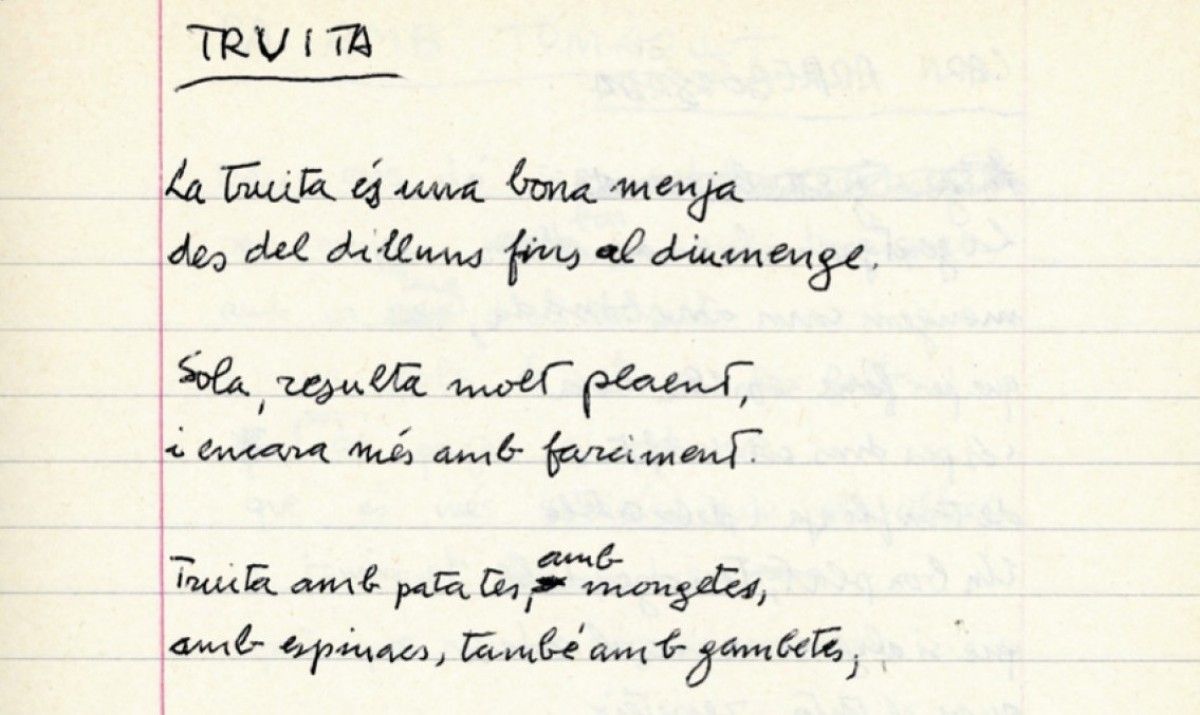 TRUITA
La truita és una bona menja
des del dilluns fins al diumenge.
Sola, resulta molt plaent,
i encara més amb farciment.
Truita amb patates, amb mongetes,
amb espinacs, també amb gambetes,